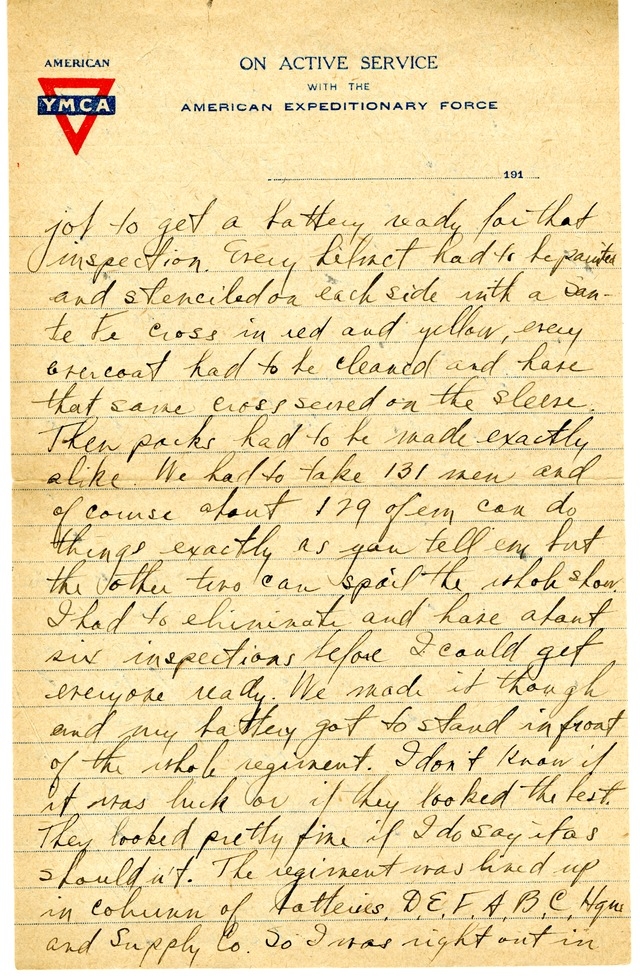 AMERICAN
YMCA
ON ACTIVE SERVICE
WITH THE
AMERICAN EXPEDITIONARY FORCE
191
job to get a battery ready for that
inspection. Every helmet had to be painted
and stenciled on each side with a San-
te Fe cross in red and yellow, every
overcoat had to be cleaned and have
that same cross sewed on the sleeve.
Then packs had to be made exactly
alike. We had to take 131 men and
of course about 129 of em can do
things exactly as you tell em but
the other two can spoil the whole show.
I had to eliminate and have about
six inspections before I could get
everyone ready. We made it though
and my battery got to stand in front
of the whole regiment. I don't know if
it was luck or if they looked the best.
They looked pretty fine if I do say it as
shouldn't. The regiment was lined up
in column of Batteries, D E, F, A, B, C, Hqrs
and Supply Co. So I was right out in